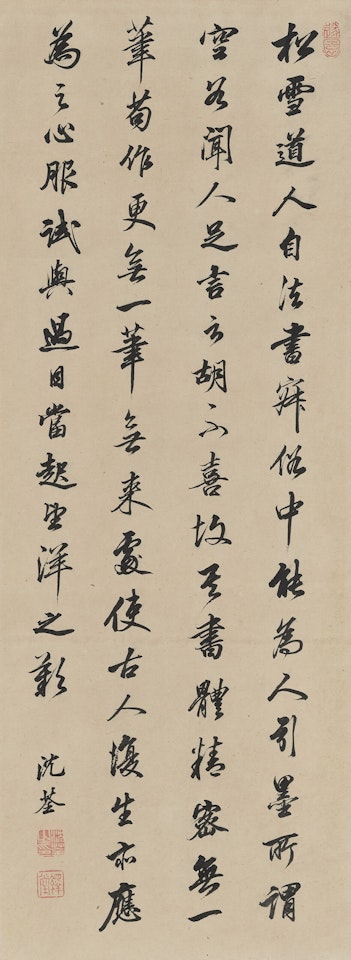 松雪道人自法書寂俗中能為人引墨所謂
空谷聞人足音云胡不喜故其書體精密無一
筆苟作更無一筆無来處使古人復生亦應
為之心服試與過目當起望洋之歎
沈荃